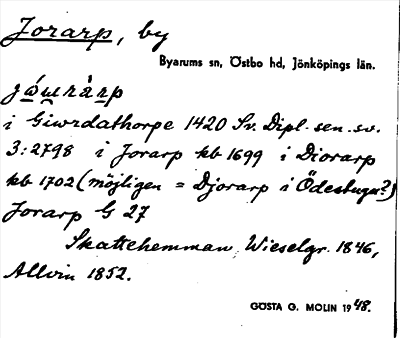 Jorarp, by
Byarums sn, Östbo hd, Jönköpings län.
i Giwrdathorpe 1420 Sv. Dipl. sen. sv.
3:2798 i Jorarp kb 1699 i Diorarp
kb 1702 (möjligen = Djorarp i Ödestugu?)
Jorarp G 27
Skattehemman Wieselgr. 1846,
Allvin 1852.
GÖSTA G. MOLIN 1948.